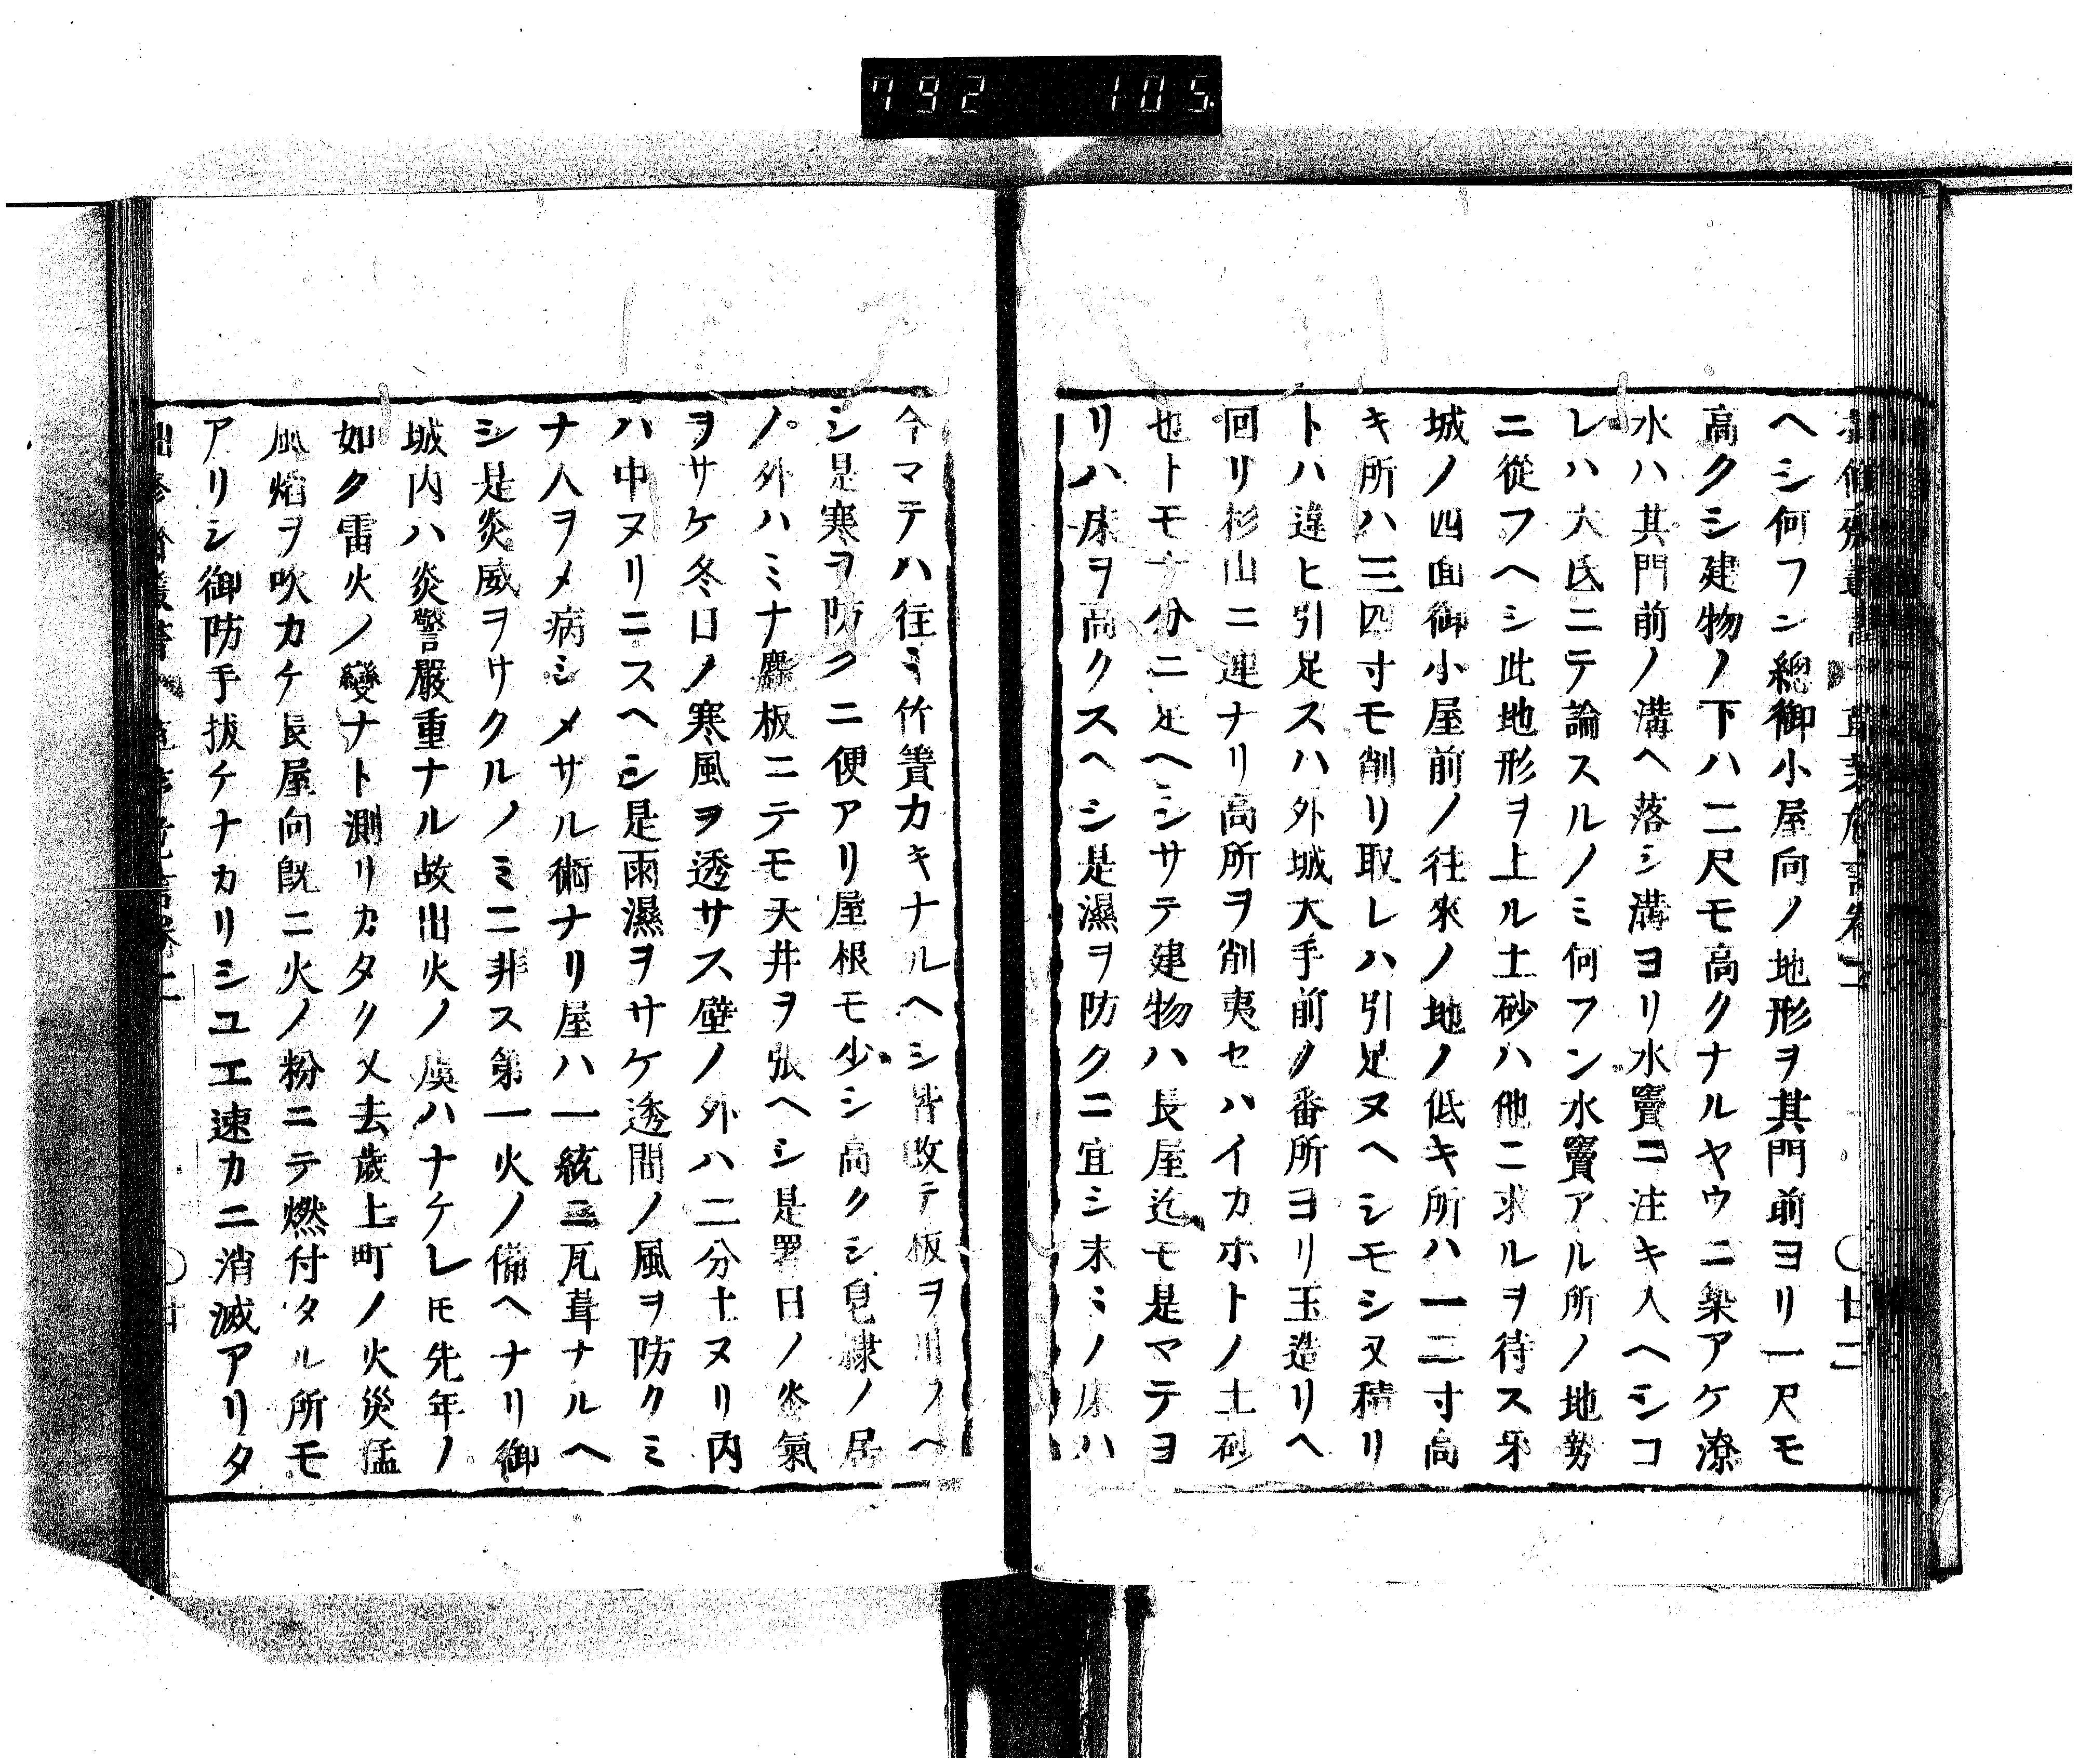 792 105
ヘシ何フン總御小屋向ノ地形ヲ其門前ヨリ一尺モ
高クシ建物ノ下ハ二尺モ高クナルヤウニ築アケ潦
水ハ其門前ノ溝ヘ落シ溝ヨリ水竇ニ注キ入ヘシコ
レハ大氐ニテ論スルノミ何フン水竇アル所ノ地勢
ニ從フヘシ此地形ヲ上ル土砂ハ他ニ求ルヲ待ス牙
城ノ四面御小屋前ノ往來ノ地ノ低キ所ハ一二寸高
キ所ハ三四寸モ削リ取レハ引足ヌヘシモシ又積リ
トハ違ヒ引足スハ外城大手前ノ番所ヨリ玉造リヘ
回リ杉山ニ連ナリ高所ヲ削夷セハイカホトノ土砂
也トモ十分ニ足ヘシサテ建物ハ長屋迄モ是マテヨ
リハ床ヲ高クスヘシ是濕ヲ防クニ宜シ末ミノ床ハ
今マテハ往ミ竹簀カキナルヘシ皆改テ板ヲ用フヘ
シ是寒ヲ防クニ便アリ屋根モ少シ高クシ皀隷ノ居
ノ外ハミナ麤板ニテモ天井ヲ張ヘシ是署日ノ炎氣
ヲサケ冬日ノ寒風ヲ透サス壁ノ外ハ二分土ヌリ内
ハ中ヌリニスヘシ是雨濕ヲサケ透間ノ風ヲ防クミ
ナ人ヲメ病シメサル術ナリ屋ハ一統ニ瓦葺ナルヘ
シ是炎威ヲサクルノミニ非ス第一火ノ備ヘナリ御
城内ハ炎警嚴重ナル故出火ノ虞ハナケレモ先年ノ
如ク雷火ノ變ナト測リカタク又去歲上町ノ火災猛
風熖ヲ吹カケ長屋向既ニ火ノ粉ニテ燃付タル所モ
アリシ御防手拔ケナカリシユエ速カニ消滅アリタ